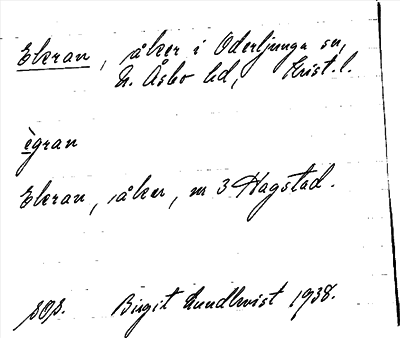 Ekran, åker i Oderljunga sn,
N. Åsbo hd, Krist. l.
ègran
Ekran, åker, nr 3 Hagstad.
Birgit Lundkvist 1938.